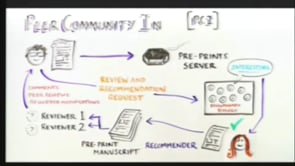 PEER COMMUNITY IN [PCI]
PRE-PRINTS
SERVER
INTERESTING
COMMENTS
REVIEW AND
RECOMMENDATION
REQUEST
? REVIEWER 1
? REVIEWER 2
PRE-PRINT
MANUSCRIPT
RECOMMENDER